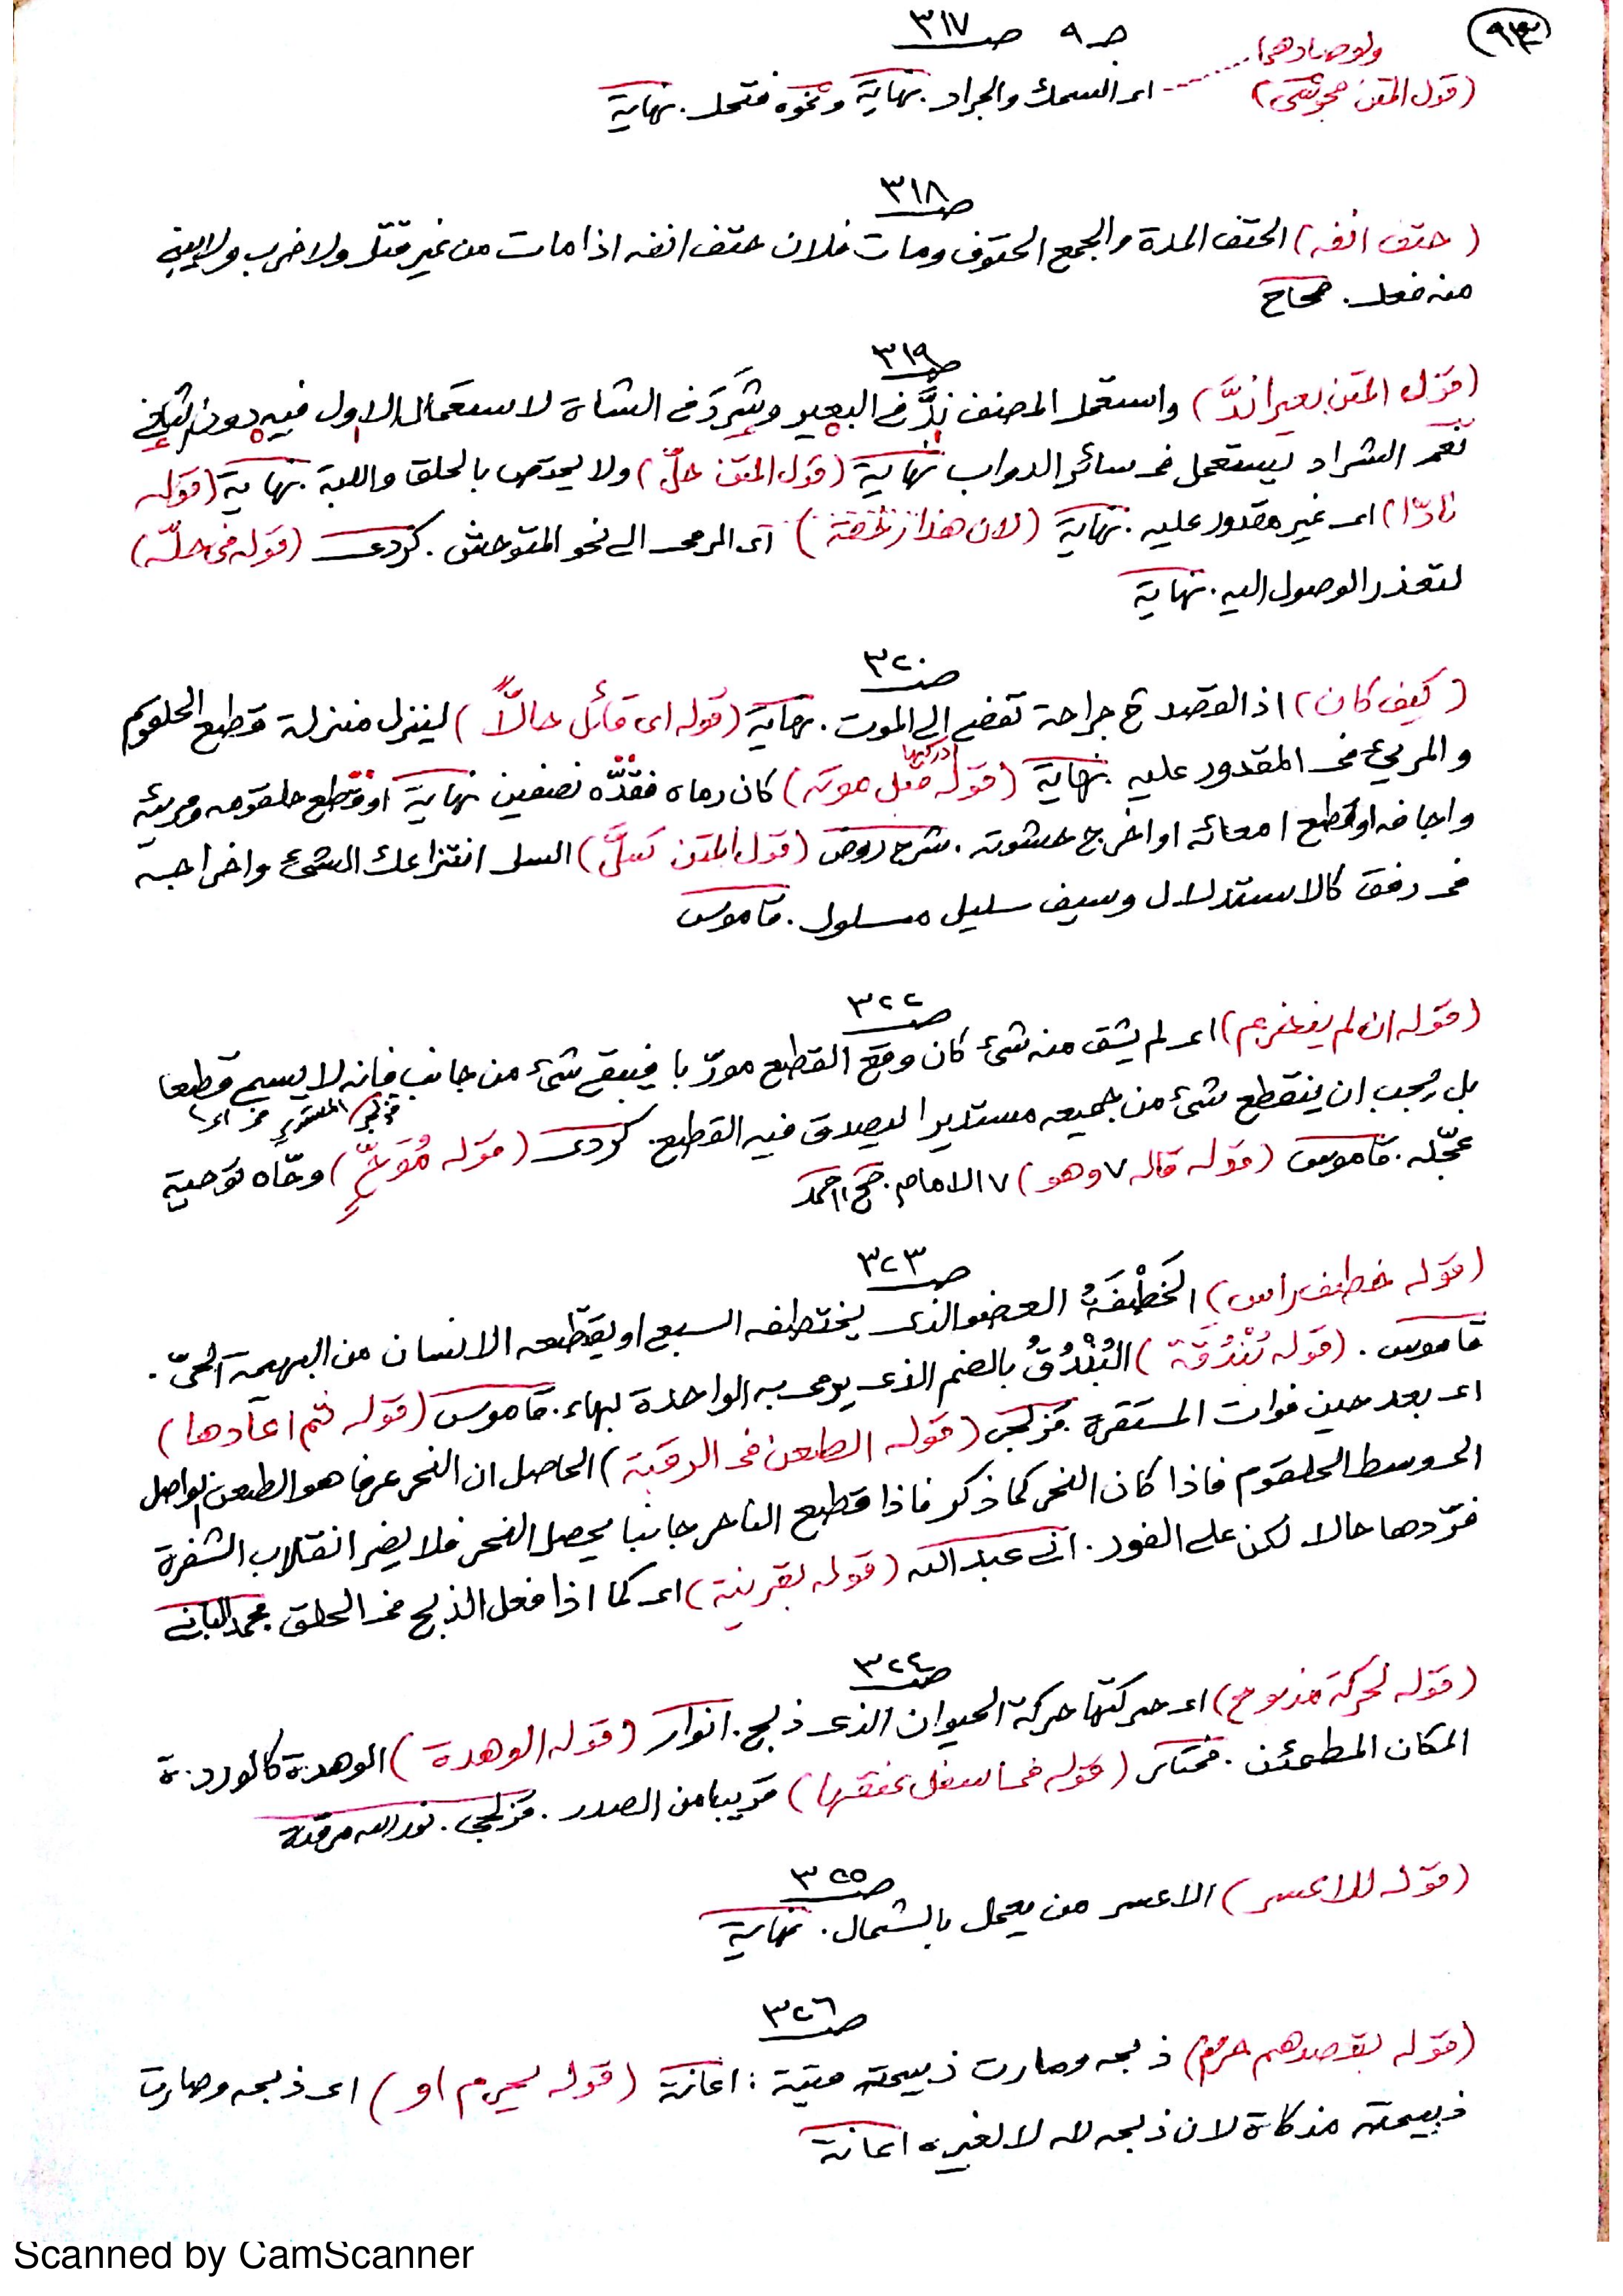 (٩٣)
ج ٩ صـ ٣١٧
ولو صادهما
(قول المتن مجوسى) اى السمك والجراد. نهاية ونحوه فتحل. نهاية
صـ ٣١٨
(حتف انفه) الحتف المدة والجمع الحتوف ومات فلان حتف انفه اذا مات من غير قتل ولا ضرب ولا يبنى
منه فعل. صحاح
صـ ٣١٩
(قول المتن بعير اندَّ) واستعمل المصنف ندَّ فى البعير وشَرَدَ فى الشاة لاستعمال الاول فيه دون الثانى
نعم الشراد يستعمل فى سائر الدواب نهاية (قول المتن حلّ) ولا يختص بالحلق واللبة. نهاية (قوله
نادّا) اى غير مقدور عليه. نهاية (لان هذا رخصة) اى الرمى الى نحو المتوحش. كردى (قوله فى حلّه)
لتعذر الوصول اليه. نهاية
صـ ٣٢٠
(كيف كان) اذ القصد ح جراحة تفضى الى الموت. نهاية (قوله اى قاتل حالاً) لينزل منزلة قطع الحلقوم
والمريء فى المقدور عليه. نهاية (قوله قبل موته) كان رماه فقدّه نصفين نهاية او قطع حلقومه ومريئه
ادركها
واجافه او قطع امعائه او اخرج حشوته. شرح روض (قول المتن كسلَّ) السل انتزاعك الشئ واخراجه
فى رفق كالاستلال وسيف سليل مسلول. قاموس
صـ ٣٢٢
(قوله ان لم ينخرم) اى لم يشق منه شئ كان وقع القطع مورّبا فيبقى شئ من جانب فانه لا يسمى قطعا
بل يجب ان ينقطع شئ من جميعه مستديرا ليصدق فيه القطع. كردى (قوله مُوَحٍّ) وحّاه توحية
عجّله. قاموس (قوله قاله ٧ وهو) ٧ الامام. شيخ احمد
صـ ٣٢٣
(قوله خطف راس) الخَطْفَةُ العضو الذى يختطفه السبع او يقطعه الانسان من البهيمة الحيّ.
قاموس. (قوله بُنْدُقَة) البُنْدُقُ بالضم الذى يرمى به الواحدة بهاء. قاموس (قوله ثم اعادها)
اى بعد حين فوات المستقرة. قزلجى (قوله الطعن فى الرقبة) الحاصل ان النحر عرفا هو الطعن الواصل
الى وسط الحلقوم فاذا كان النحر كما ذكر فاذا قطع الناحر جانبا يحصل النحر فلا يضر انقلاب الشفرة
فردّها حالا لكن على الفور. عبد الله (قوله بقرينة) اى كما اذا فعل الذبح فى الحلق محمد البانى
صـ ٣٢٤
(قوله لحركة مذبوح) اى حركتها حركة الحيوان الذى ذبح. انوار (قوله الوهدة) الوهدة كالوردة
المكان المطمئن. مختار (قوله فى اسفل عنقها) قريبا من الصدر. قزلجى. نور الله مرقده
صـ ٣٢٥
(قوله للاعسر) الاعسر من يعمل بالشمال. نهاية
صـ ٣٢٦
(قوله بقصدهم حرم) ذبحه وصارت ذبيحته ميتة: اعانة (قوله يحرم او) اى ذبحه وصارت
ذبيحته مذكاة لان ذبحه لله لا لغيره اعانة
Scanned by CamScanner